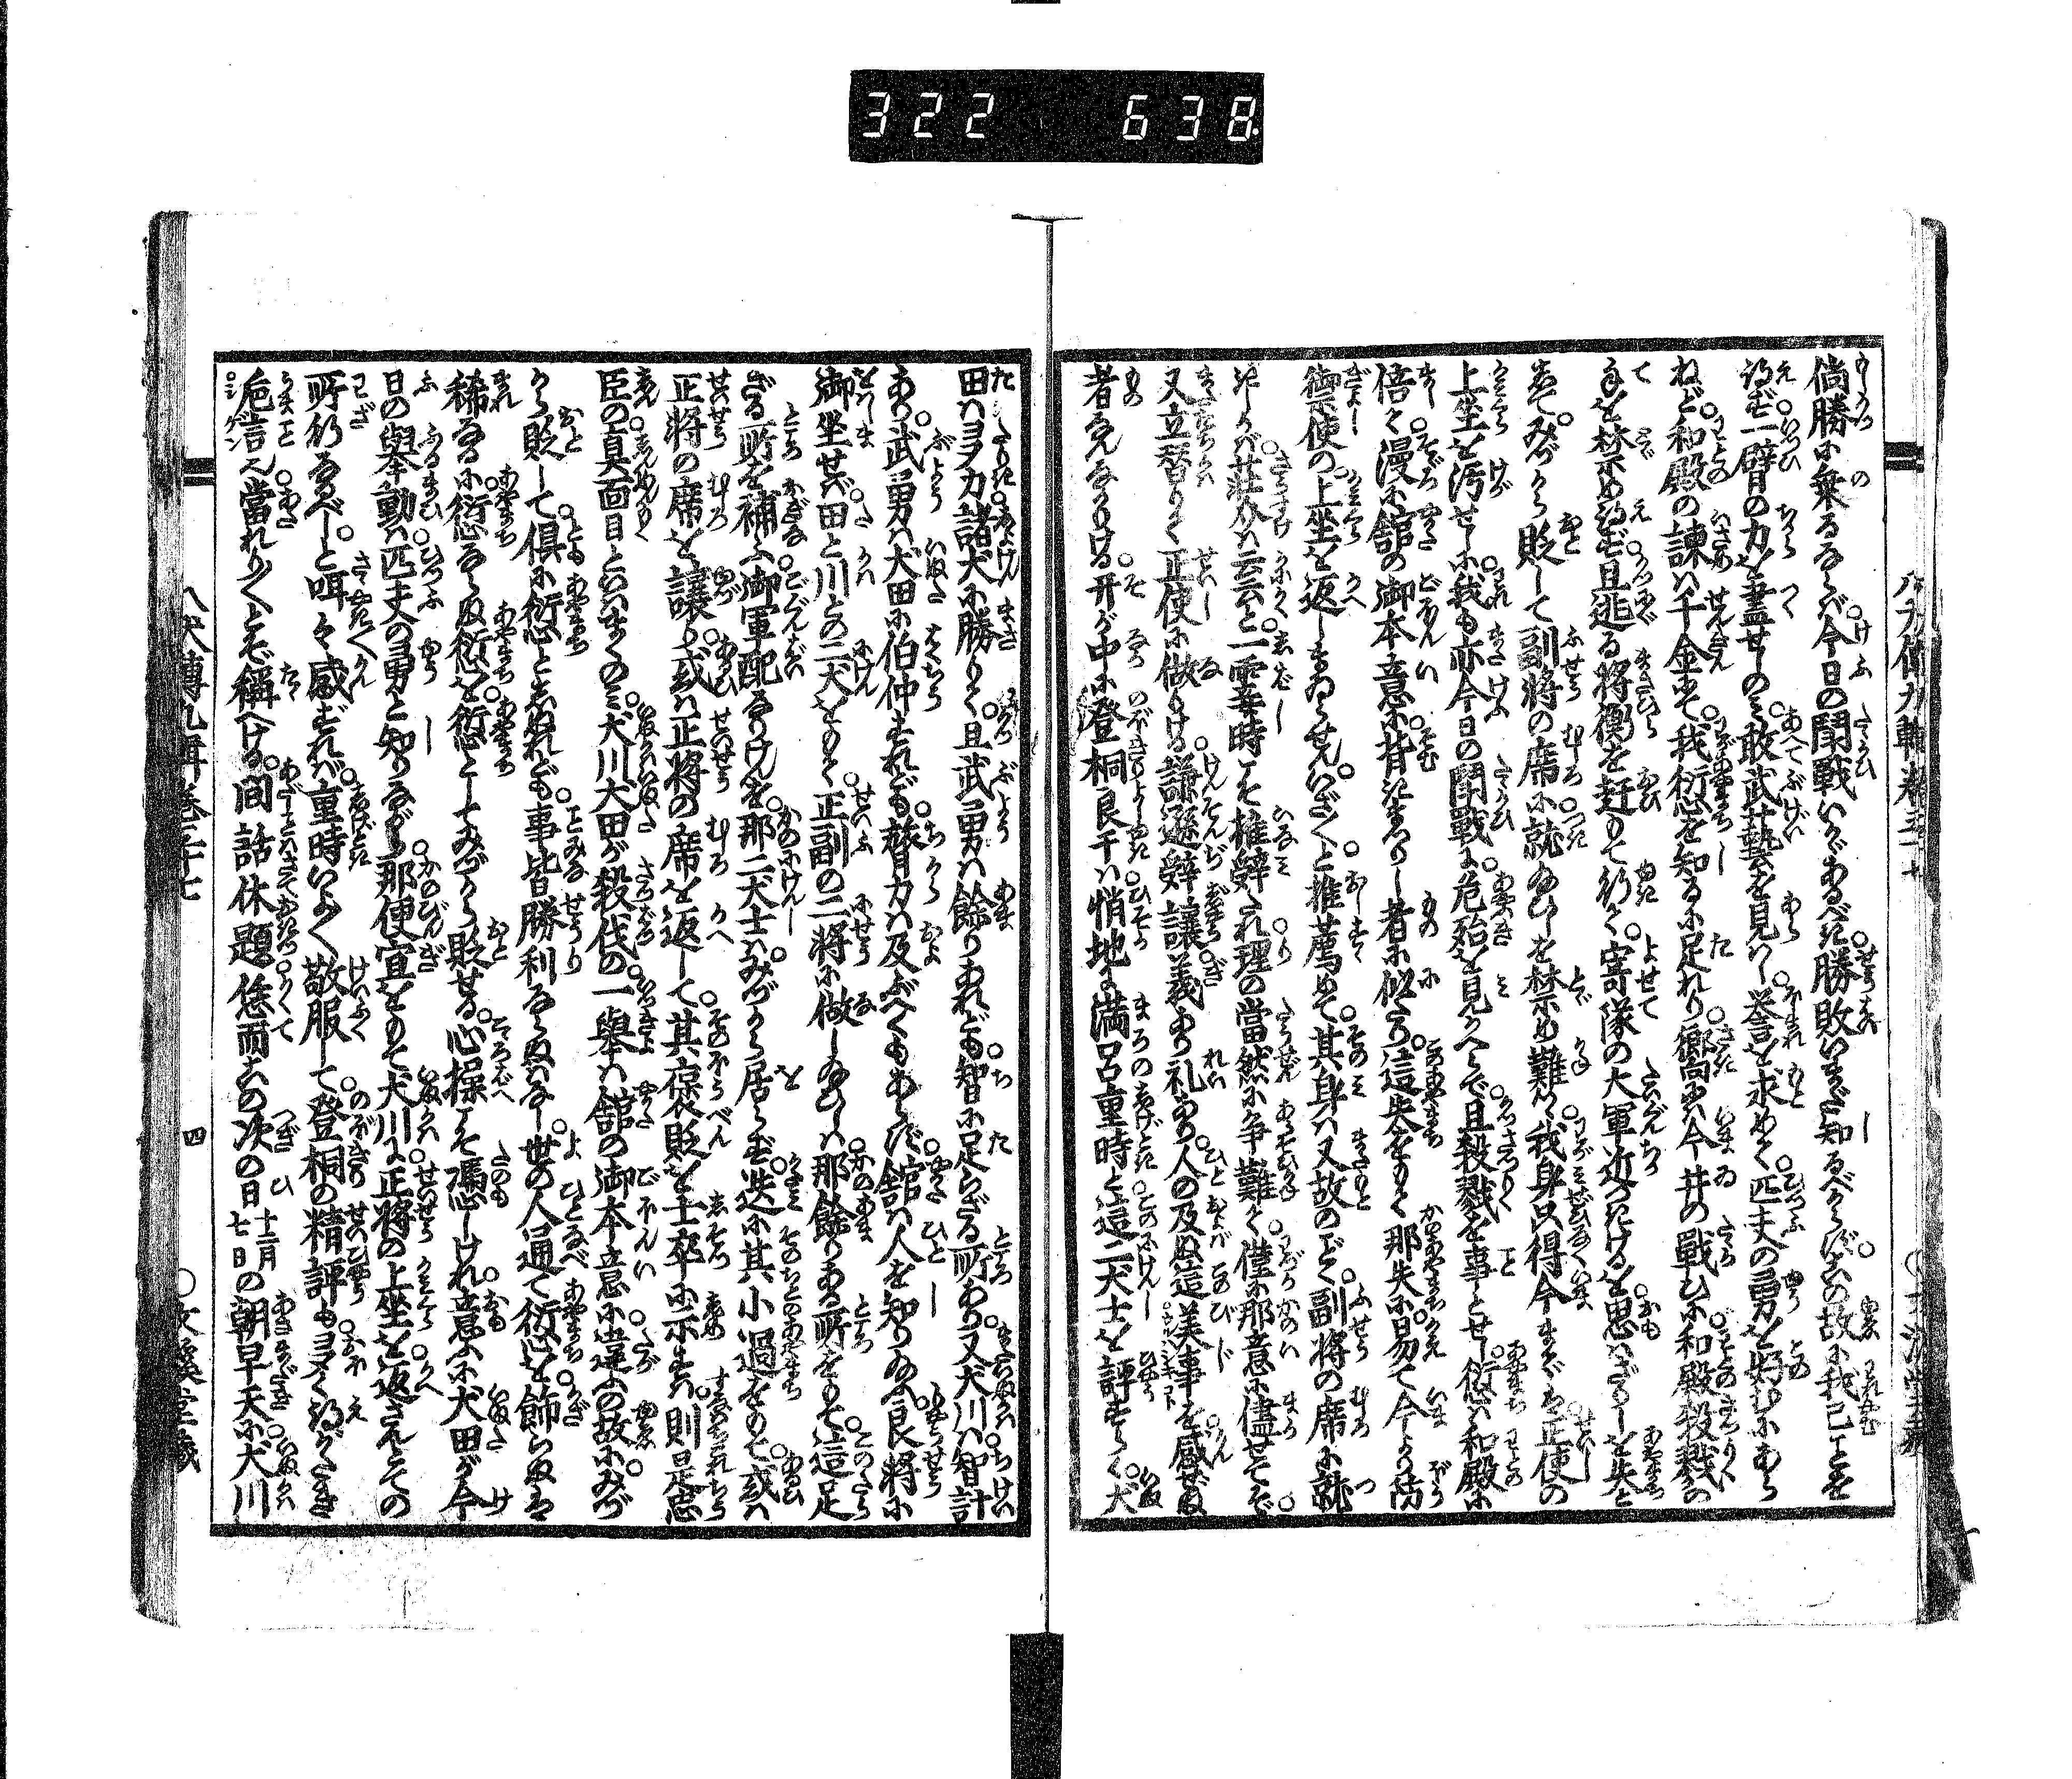 322 638
尚勝に乗るならば今日の閗戦いかゞあるべき勝敗いまだ知るべからずこの故に我已ことを
得ず一臂の力を盡せしのみ敢武藝を見はし誉を求めて匹夫の勇を好むにあら
ねど和殿の諫は千金もて我愆を知るに足れり嚮には今井の戦ひに和殿殺戮の
手を禁め得ず且迯る将衡を赶もて行く寄隊の大軍近つきけるを思はざりしを失と
して みづから貶して副将の席に就ゐひしを禁め難く我身只得今までは正使の
上坐を汚せしに我も亦今日の閗戦に危殆を見かへらで且殺戮を事とせし愆は和殿に
倍く漫に舘の御本意に背きまつりし者に似たり這失をもて那失に易て今より防
禦使の上坐を返しまゐらせんいざ〳〵と推薦めて其身は又故のごとく副将の席に就
にければ荘介は云云と一霎時こそ推辞たれ理の當然に争難て僅に那意に儘せてぞ
又立替りて正使に做りける謙遜辞譲義あり礼ある人の及ぬ這美事を感ぜぬ
者なんなかりける开が中に登桐良干は悄地に満呂重時と這二犬士を評すらく犬
田は多力諸犬に勝りて且武勇は餘りあれども智に足らざる所あり又犬川は智計
あり武勇は犬田に伯仲すれども膂力は及ぶべくもあらず舘は人を知りゐふ良将に
御坐せば田と川との二犬をもて正副の二将に做しゐひしは那餘りある所をもて這足
ざる所を補ふ御軍配なりけんを那二犬士はみづから居らず迭に其小過をもて或は
正将の席を譲り或は正将の席を返して其褒貶を士卒に示すは則是忠
臣の真面目といはまくのみ犬川犬田が殺伐の一舉は舘の御本意に違ふの故にみづ
から貶して倶に愆としぬれども事皆勝利ならぬはなし世の人通て愆を飾らぬは
稀なるに愆ならぬ愆を愆としてみづから貶せる心操こそ憑しけれ意ふに犬田が今
日の舉動は匹夫の勇と知りながら那便宜をもて犬川に正将の上坐を返さんとての
所行なるべしと咡々感ずれば重時いよ〳〵敬服して登桐の精評も多く得がたき
卮言也當れり〳〵とぞ稱へける間話休題恁而この次の日十二月七日の朝早天に犬川
八犬傳九輯巻三十七
四
文溪堂藏